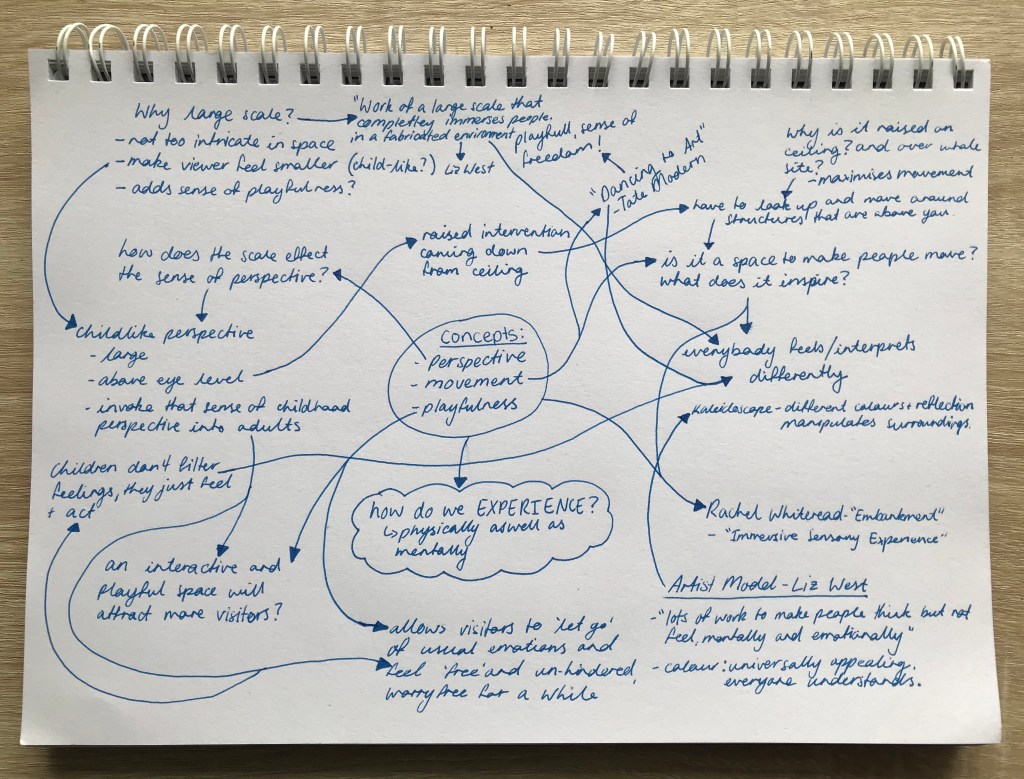 Why large scale?
- not too intricate in space
- make viewer feel smaller (child-like?)
- adds sense of playfulness?
"Work of a large scale that
completley immerses people,
in a fabricated enviroment"
Liz West
playfull, sense of
freedom!
"Dancing to Art"
- Tate Modern
Why is it raised on
ceiling? and over whole
site?
- maximises movement
have to look up and move around
structures that are above you.
raised intervention
coming down
from ceiling
is it a space to make people move?
what does it inspire?
how does the scale effect
the sense of perspective?
Childlike perspective
- large
- above eye level
- invoke that sense of childhood
perspective into adults
Concepts:
- Perspective
- movement
- playfulness
everybody feels/interprets
differently
Kaleidoscope - different colours + reflection
manipulates surroundings.
Children don't filter
feelings, they just feel
+ act
how do we EXPERIENCE?
↳ physically aswell as
mentally
Rachel Whiteread - "Embankment"
- "Immersive Sensory Experience"
an interactive and
playful space will
attract more visitors?
Artist Model - Liz West
- "lots of work to make people think but not
feel, mentally and emotionally"
- colour: universally appealing.
everyone understands.
allows visitors to 'let go'
of usual emotions and
feel 'free' and un-hindered,
worry free for a while